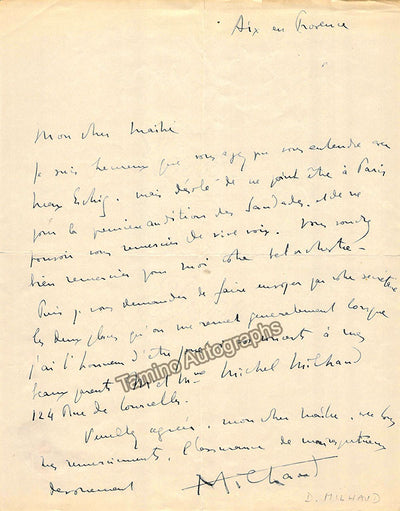 Aix en Provence
Mon cher Maître
Je suis heureux que vous ayez pu vous entendre avec
Max Eschig. mais désolé de ne point être à Paris
pour la première audition des Saudades, et de ne
pouvoir vous remercier de vive voix. Vous voudrez
bien remercier pour moi votre bel orchestre.
Puis je vous demander de faire envoyer par votre secrétaire
les deux places qu'on me remet généralement lorsque
j'ai l'honneur d'être joué concerts à mes
beaux parents Mr et Mme Michel Milhaud
124 Rue de Courcelles.
Veuillez agréer, mon cher Maître, avec tous
mes remerciements, l'assurance de mes
dévouement
Milhaud
D. MILHAUD
Tamino Autographs